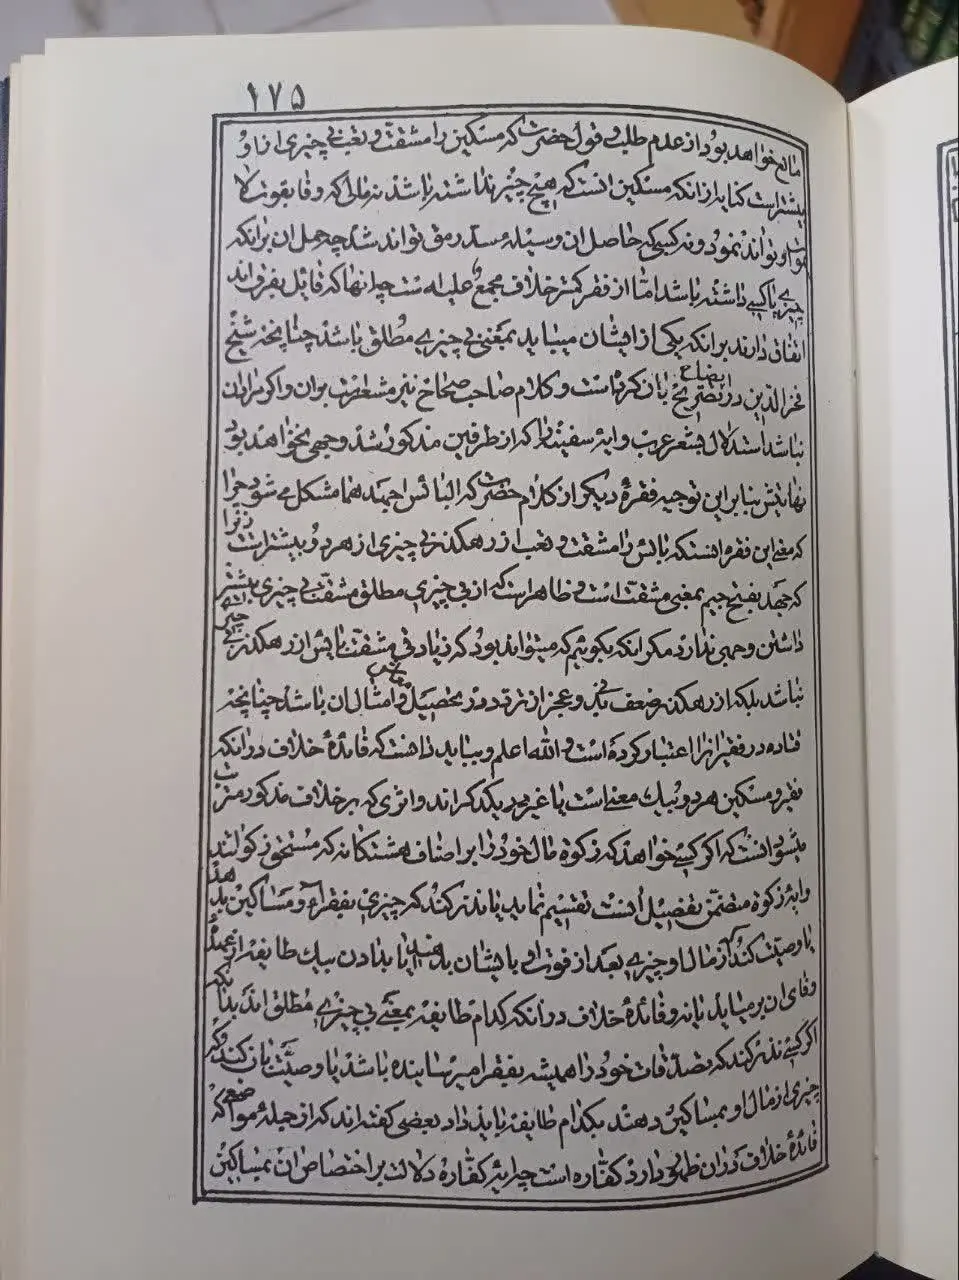 ۱۷۵
مانع خواهد بود از عدم طلب و قول حضرت که مسکین را مشقت و تعب بی چیزی از او
بیشتر است کنایه از آنکه مسکین آنست که هیچ چیز نداشته باشد نه مالی که وفا بقوت
تواند نمود و نه کسبی که حاصل آن وسیلهٔ سد رمق تواند شد چه حمل آن برآنکه
چیزی یا کسبی داشته باشد اما از فقیر کمتر خلاف مجمع علیه است چه آنها که قائل بفرق‌اند
اتفاق دارند برآنکه یکی از ایشان میباید بمعنی بی چیزی مطلق باشد چنانچه شیخ
فخر الدین در ایضاح تصریح بآن کرده است و کلام صاحب صحاح نیز مشعر است بآن و اگر مراد آن
نباشد استدلال بشعر عرب و آیهٔ سفینه را که از طرفین مذکور شد وجهی نخواهد بود
نهایتش بنابر این توجیه فقرهٔ دیگر از کلام حضرت که البائس اجهدهما مشکل می شود چرا
که معنی این فقره اینست که بائس را مشقت و تعب از رهگذر بی چیزی از هر دو بیشتر است زیرا
که جهد بفتح جیم بمعنی مشقت است و ظاهر است که از بی چیزی مطلق مشقت بی چیزی بیشتر
داشتن وجهی ندارد مگر آنکه بگوئیم که میتواند بود که زیادتی مشقت بائس از رهگذر بی چیزی
نباشد بلکه از رهگذر ضعف بدن و عجز از تردد در تحصیل معاش و امثال آن باشد چنانچه
قتاده در فقیر آنرا اعتبار کرده است و الله اعلم و بباید دانست که فائدهٔ خلاف در آنکه
فقیر و مسکین هر دو بیک معنی است یا غیر یکدیگراند و اثری که بر خلاف مذکور مترتب
میشود آنست که اگر کسی خواهد که زکوة مال خود را بر اصناف هشتگانه که مستحق زکوة‌اند
و آیهٔ زکوة متضمن تفصیل آنست تقسیم نماید یا نذر کند که چیزی بفقراء و مساکین بدهد
یا وصیت کند که از مال او چیزی بعد از فوت او بایشان بدهند آیا بدادن بیک طایفه از عهدهٔ
وفای آن برمیاید یا نه و فائدهٔ خلاف در آنکه کدام طایفه بمعنی بی چیزی مطلق‌اند بدانکه
اگر کسی نذر کند که تصدقات خود را همیشه بفقرا میرسانیده باشد یا وصیت بآن کند که
چیزی از مال او بمساکین دهند بکدام طایفه باید داد بعضی گفته‌اند که از جملهٔ مواضعی که
فائدهٔ خلاف در آن ظهور دارد کفاره است چه آیهٔ کفاره دلالت بر اختصاص آن بمساکین